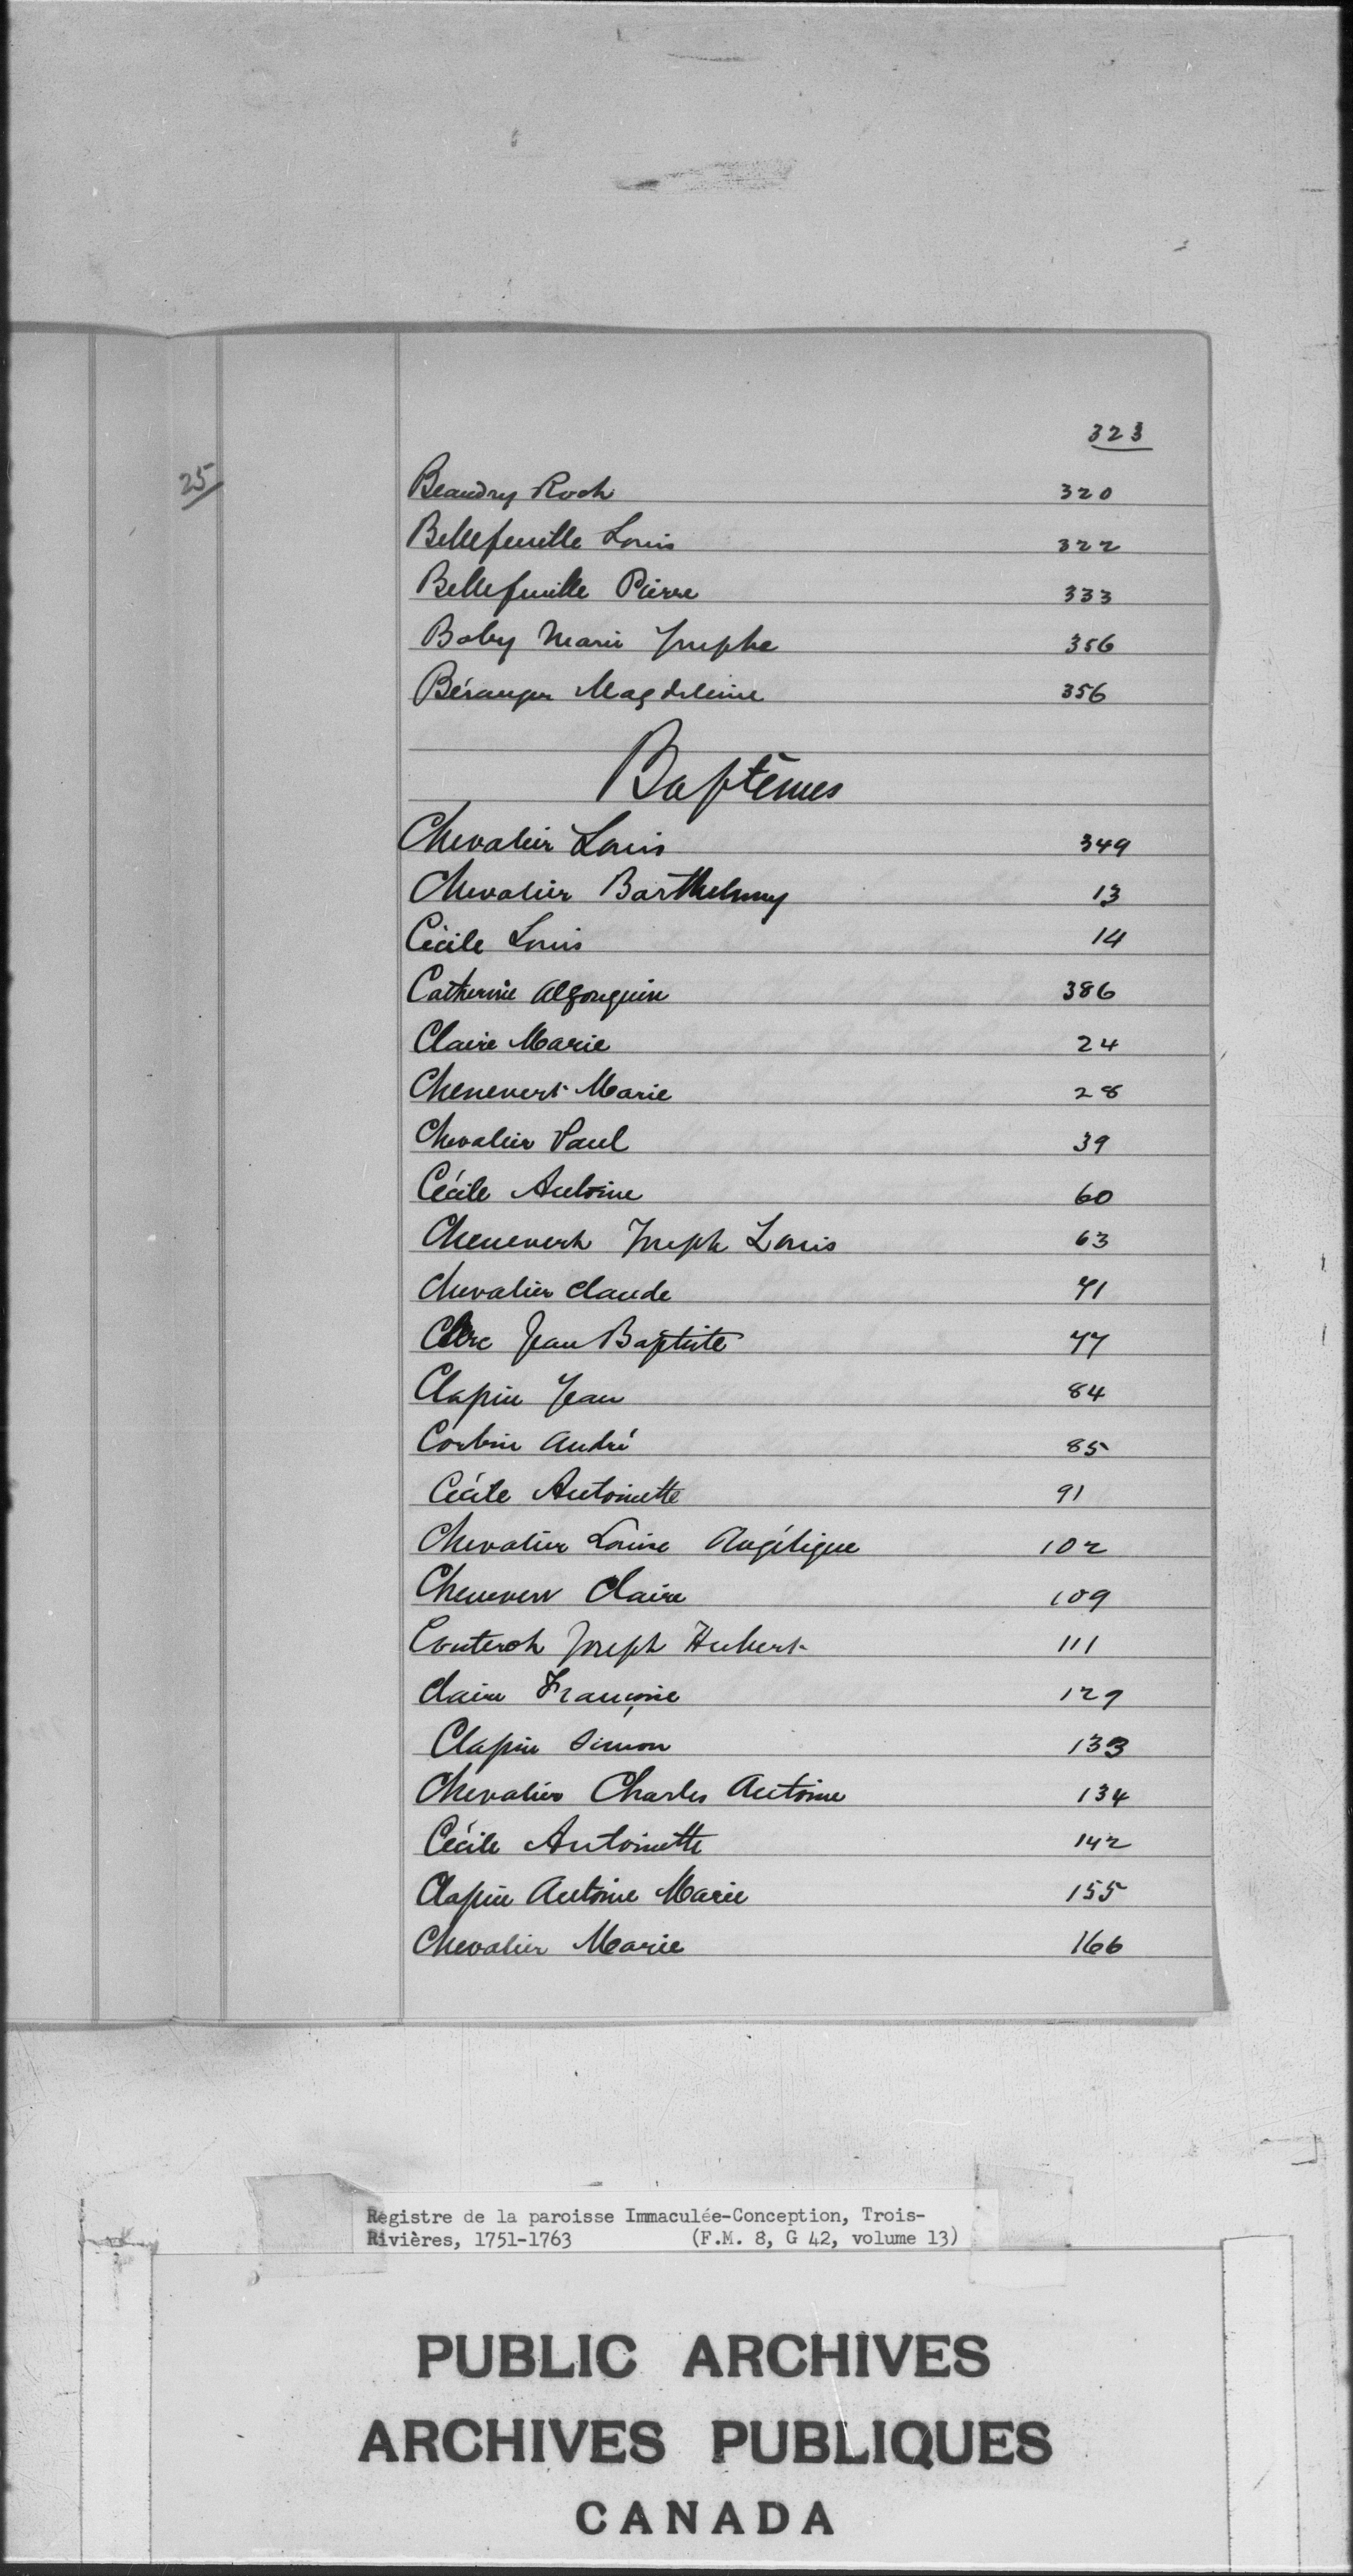 323
25
Beaudry Roch 320
Bellefeuille Louis 322
Bellefeuille Pierre 333
Baby Marie Josephe 356
Béranger Magdeleine 356
Baptêmes
Chevalier Louis 349
Chevalier Barthelemy 13
Cécile Louis 14
Catherine Algonquine 386
Claire Marie 24
Chenevert Marie 28
Chevalier Paul 39
Cécile Antoine 60
Chenevert Joseph Louis 63
Chevalier Claude 71
Clerc Jean Baptiste 77
Clapin Jean 84
Corbin André 85
Cécile Antoinette 91
Chevalier Louise Angélique 102
Chenevert Claire 109
Couterot Joseph Hubert 111
Claire Françoise 129
Clapin Simon 133
Chevalier Charles Antoine 134
Cécile Antoinette 142
Clapin Antoine Marie 155
Chevalier Marie 166
Registre de la paroisse Immaculée-Conception, Trois-
Rivières, 1751-1763 (F.M. 8, G 42, volume 13)
PUBLIC ARCHIVES
ARCHIVES PUBLIQUES
CANADA